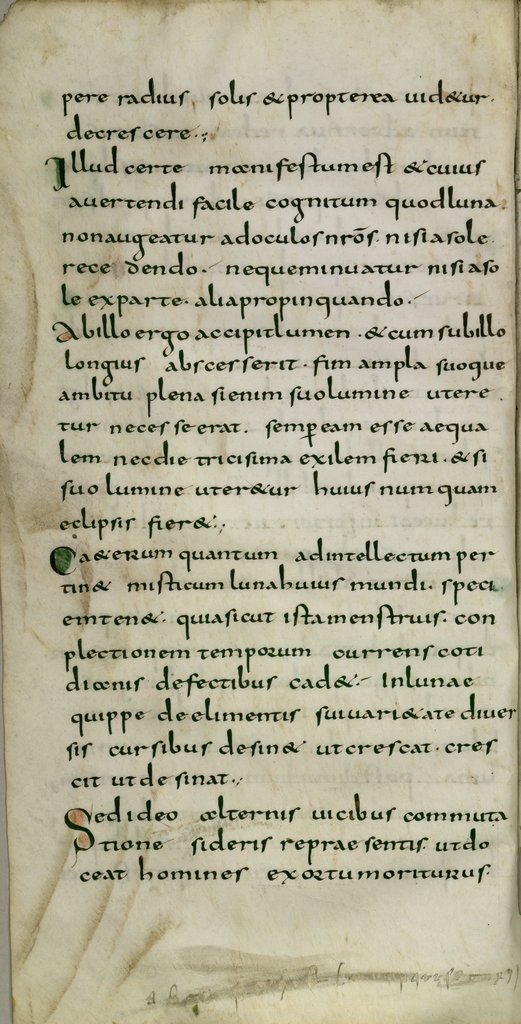 pere radius, solis & propterea uid&ur.
decrescere.,
Illud certe manifestum est & cuius
auertendi facile cognitum quod luna.
non augeatur ad oculos nr̄os. nisi a sole
recedendo. neque minuatur nisi a so
le ex parte. alia propinquando.
Ab illo ergo accipit lumen. & cum sub illo
longius abscesserit. fim ampla suoque
ambitu plena si enim suo lumine utere
tur necesse erat. semp̄ eam esse aequa
lem nec die tricisima exilem fieri. & si
suo lumine uter&ur huius numquam
eclipsis fier&.,
Ca&erum quantum ad intellectum per
tin& misticum luna huius mundi. speci
em ten&. quia sicut ista menstruis. con
plectionem temporum currens coti
dianis defectibus cad&. In lunae
quippe de elimentis sui uari&ate diuer
sis cursibus desin& ut crescat. cres
cit ut desinat.,
Sed ideo alternis uicibus commuta
tione sideris repraesentis. ut do
ceat homines ex ortu moriturus.